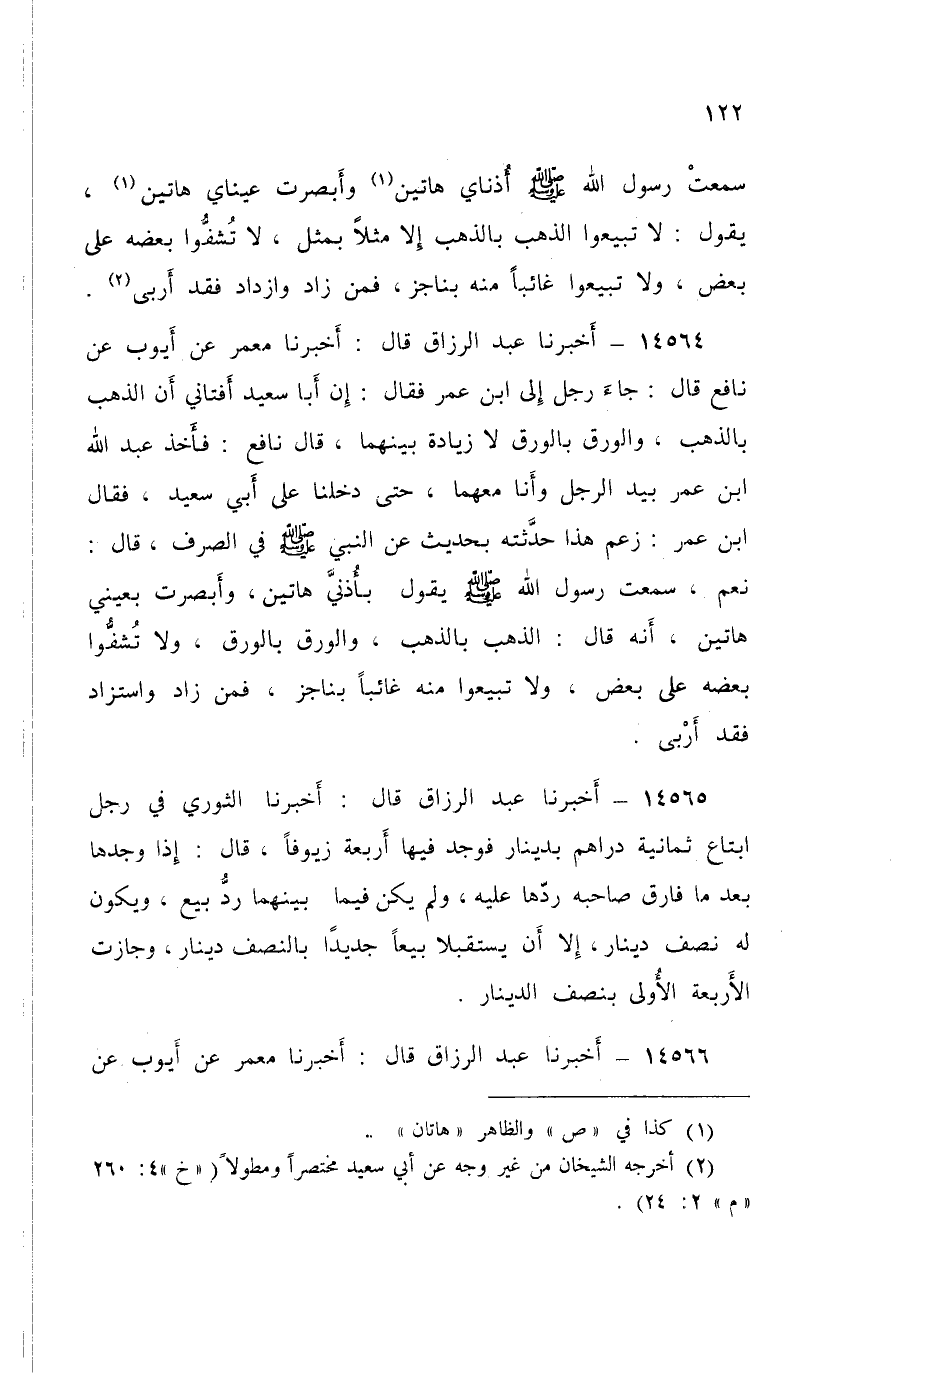 ١٢٢
سمعتْ رسول الله ﷺ أُذناي هاتين(١) وأَبصرت عيناي هاتين(١) ،
يقول : لا تبيعوا الذهب بالذهب إلا مثلاً بمثل ، لا تُشفُّوا بعضه على
بعض ، ولا تبيعوا غائباً منه بناجز ، فمن زاد وازداد فقد أَربى(٢) .
١٤٥٦٤ – أَخبرنا عبد الرزاق قال : أَخبرنا معمر عن أَيوب عن
نافع قال : جاءَ رجل إلى ابن عمر فقال : إن أَبا سعيد أَفتاني أَن الذهب
بالذهب ، والورق بالورق لا زيادة بينهما ، قال نافع : فأَخذ عبد الله
ابن عمر بيد الرجل وأَنا معهما ، حتى دخلنا على أَبي سعيد ، فقال
ابن عمر : زعم هذا حدَّثته بحديث عن النبي ﷺ في الصرف ، قال :
نعم ، سمعت رسول الله ﷺ يقول بأُذنيَّ هاتين ، وأَبصرت بعيني
هاتين ، أَنه قال : الذهب بالذهب ، والورق بالورق ، ولا تُشفُّوا
بعضه على بعض ، ولا تبيعوا منه غائباً بناجز ، فمن زاد واستزاد
فقد أَرْبى .
١٤٥٦٥ – أَخبرنا عبد الرزاق قال : أَخبرنا الثوري في رجل
ابتاع ثمانية دراهم بدينار فوجد فيها أَربعة زيوفاً ، قال : إذا وجدها
بعد ما فارق صاحبه ردّها عليه ، ولم يكن فيما بينهما ردُّ بيع ، ويكون
له نصف دينار ، إلا أن يستقبلا بيعاً جديدًا بالنصف دينار ، وجازت
الأَربعة الأُولى بنصف الدينار .
١٤٥٦٦ – أَخبرنا عبد الرزاق قال : أَخبرنا معمر عن أَيوب عن
(١) كذا في « ص » والظاهر « هاتان » ..
(٢) أخرجه الشيخان من غير وجه عن أبي سعيد مختصراً ومطولاً ( « خ » ٤ : ٢٦٠
« م » ٢ : ٢٤) .